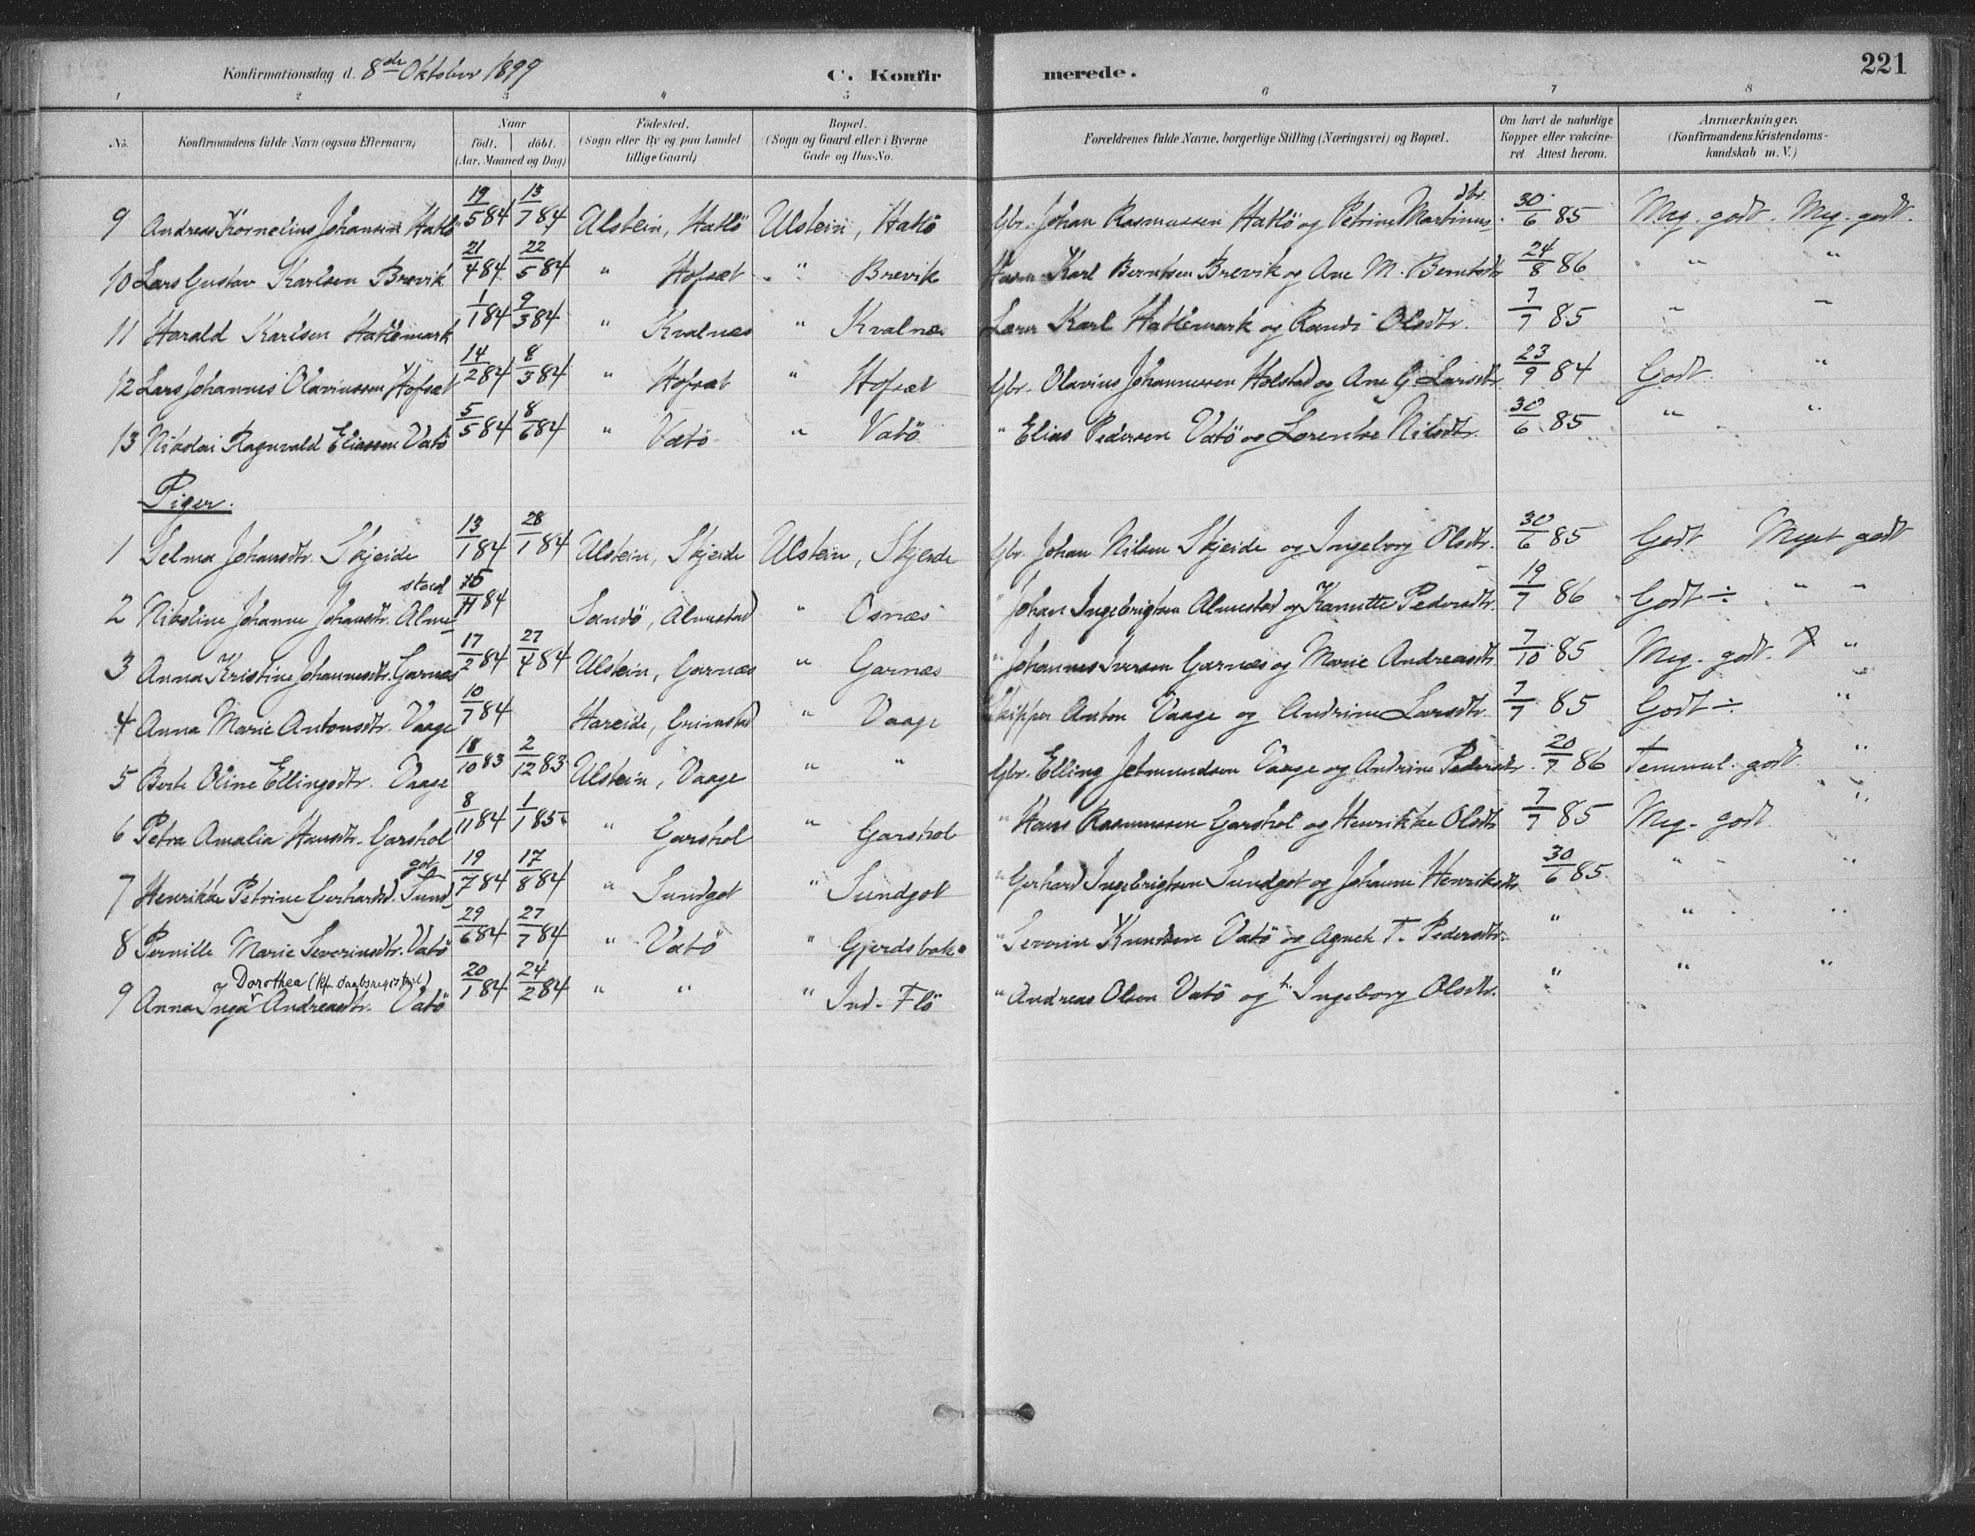 Konfirmationsdag d. 8de Oktober 1899 C. Konfirmerede. 221
1 2 3 4 5 6 7 8
No. Konfirmandens fulde Navn (ogsaa Efternavn) Naar födt. döbt. (Aar, Maaned og Dag) Födested. (Sogn eller By og paa Landet tillige Gaard) Bopæl. (Sogn og Gaard eller i Byerne Gade og Hus-No. Forældrenes fulde Navne, borgerlige Stilling (Næringsvei) og Bopæl. Om havt de naturlige Kopper eller vakcineret Attest herom. Anmærkninger. (Konfirmandens Kristendomskundskab m. V.)
9 Andreas Kornelius Johansen Hatlö 19/5 84 13/7 84 Ulstein, Hatlö Ulstein, Hatlö Gbr. Johan Rasmussen Hatlö og Petrine Martinusdtr. 30/6 85 Meg. godt. Meg. godt.
10 Lars Gustav Karlsen Brevik 21/4 84 22/5 84 " Hofsæt " Brevik Karl Berntsen Brevik og Ane M. Berntsdtr 24/8 86 " "
11 Harald Karlsen Hatlemark 1/1 84 9/3 84 " Kvalnæs " Kvalnæs Lærer Karl Hatlemark og Randi Olsdtr. 7/7 85 " "
12 Lars Johannes Olaviussen Hofsæt 14/2 84 8/3 84 " Hofsæt " Hofsæt Gbr. Olavius Johannessen Hofstad og Ane G. Larsdtr. 23/9 84 Godt "
13 Nikolai Ragnvald Eliassen Vatö 5/5 84 8/6 84 " Vatö " Vatö " Elias Pedersen Vatö og Lorentse Nilsdtr. 30/6 85 " "
Piger.
1 Selma Johansdtr. Skjeide 13/1 84 28/1 84 Ulstein, Skjeide Ulstein, Skjeide Gbr. Johan Nilsen Skjeide og Ingeborg Olsdtr. 30/6 85 Godt Meget godt
2 Nikoline Johanne Johansdtr. Almestad 15/11 84 Sandö, Almestad " Osnæs " Johan Ingebrigtsen Almestad og Kanutte Pedersdtr. 19/7 86 Godt ÷ " "
3 Anna Kristine Johannesdtr. Garnæs 17/2 84 27/4 84 Ulstein, Garnæs " Garnæs " Johannes Iversen Garnæs og Marie Andreasdtr 7/10 85 Meg. godt. "
4 Anna Marie Antonsdtr. Vaage 10/7 84 Hareide, Grimstad " Vaage Skipper Anton Vaage og Andrine Larsdtr. 7/7 85 Godt ÷ "
5 Berte Oline Ellingsdtr. Vaage 18/10 83 2/12 83 Ulstein, Vaage " " Gbr. Elling Jetmundsen Vaage og Andrine Pedersdtr. 20/7 86 Temmel. godt "
6 Petra Amalia Hansdtr. Garshol 8/11 84 1/1 85 " Garshol " Garshol " Hans Rasmussen Garshol og Henrikke Olsdtr 7/7 85 Meg. godt "
7 Henrikke Petrine Gerhardsd. Sundgot 19/7 84 17/8 84 " Sundgot " Sundgot " Gerhard Ingebrigtsen Sundgot og Johanne Henriksdtr 30/6 85 " "
8 Pernille Marie Severinsdtr. Vatö 29/6 84 27/7 84 " Vatö " Gjerdsbak " Severin Knudsen Vatö og Agnete T. Pedersdtr. " " "
Dorothea (kfr. daabsregisteret)
9 Anna Inga Andreasdtr. Vatö 20/1 84 24/2 84 " " " Ind. Flö " Andreas Olsen Vatö og h. Ingeborg Olsdtr. " " "